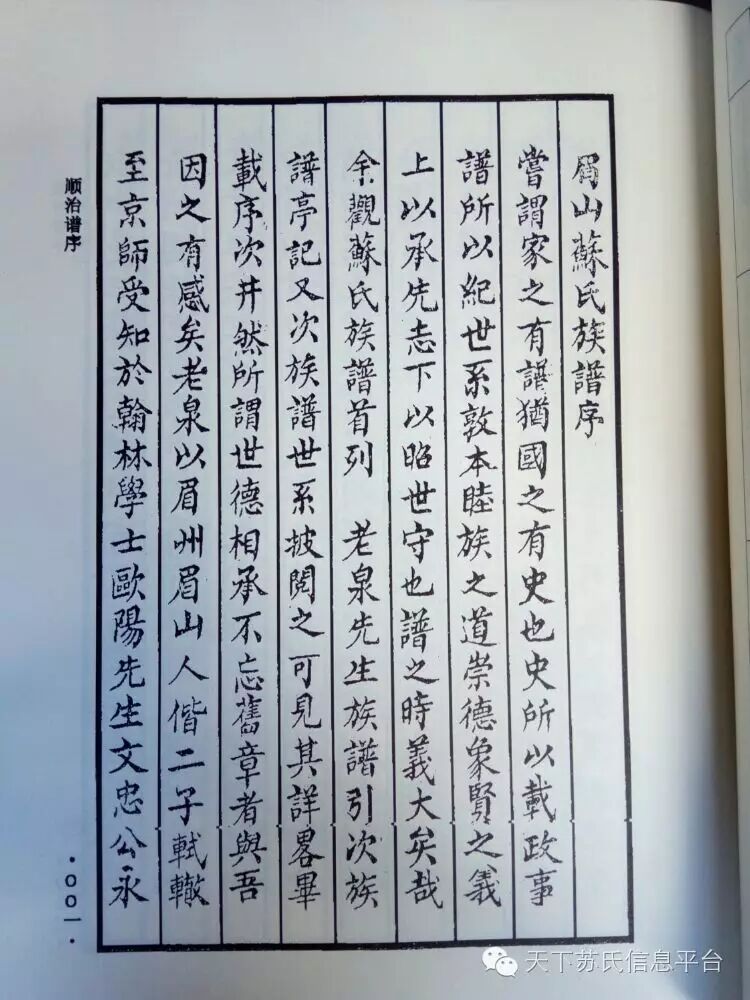 眉山蘇氏族譜序
嘗謂家之有譜猶國之有史也史所以載政事
譜所以紀世系敦本睦族之道崇德象賢之義
上以承先志下以昭世守也譜之時義大矣哉
余觀蘇氏族譜首列　老泉先生族譜引次族
譜亭記又次族譜世系披閱之可見其詳畧畢
載序次井然所謂世德相承不忘舊章者與吾
因之有感矣老泉以眉州眉山人偕二子軾轍
至京師受知於翰林學士歐陽先生文忠公永
顺治谱序
·〇〇一·
天下苏氏信息平台